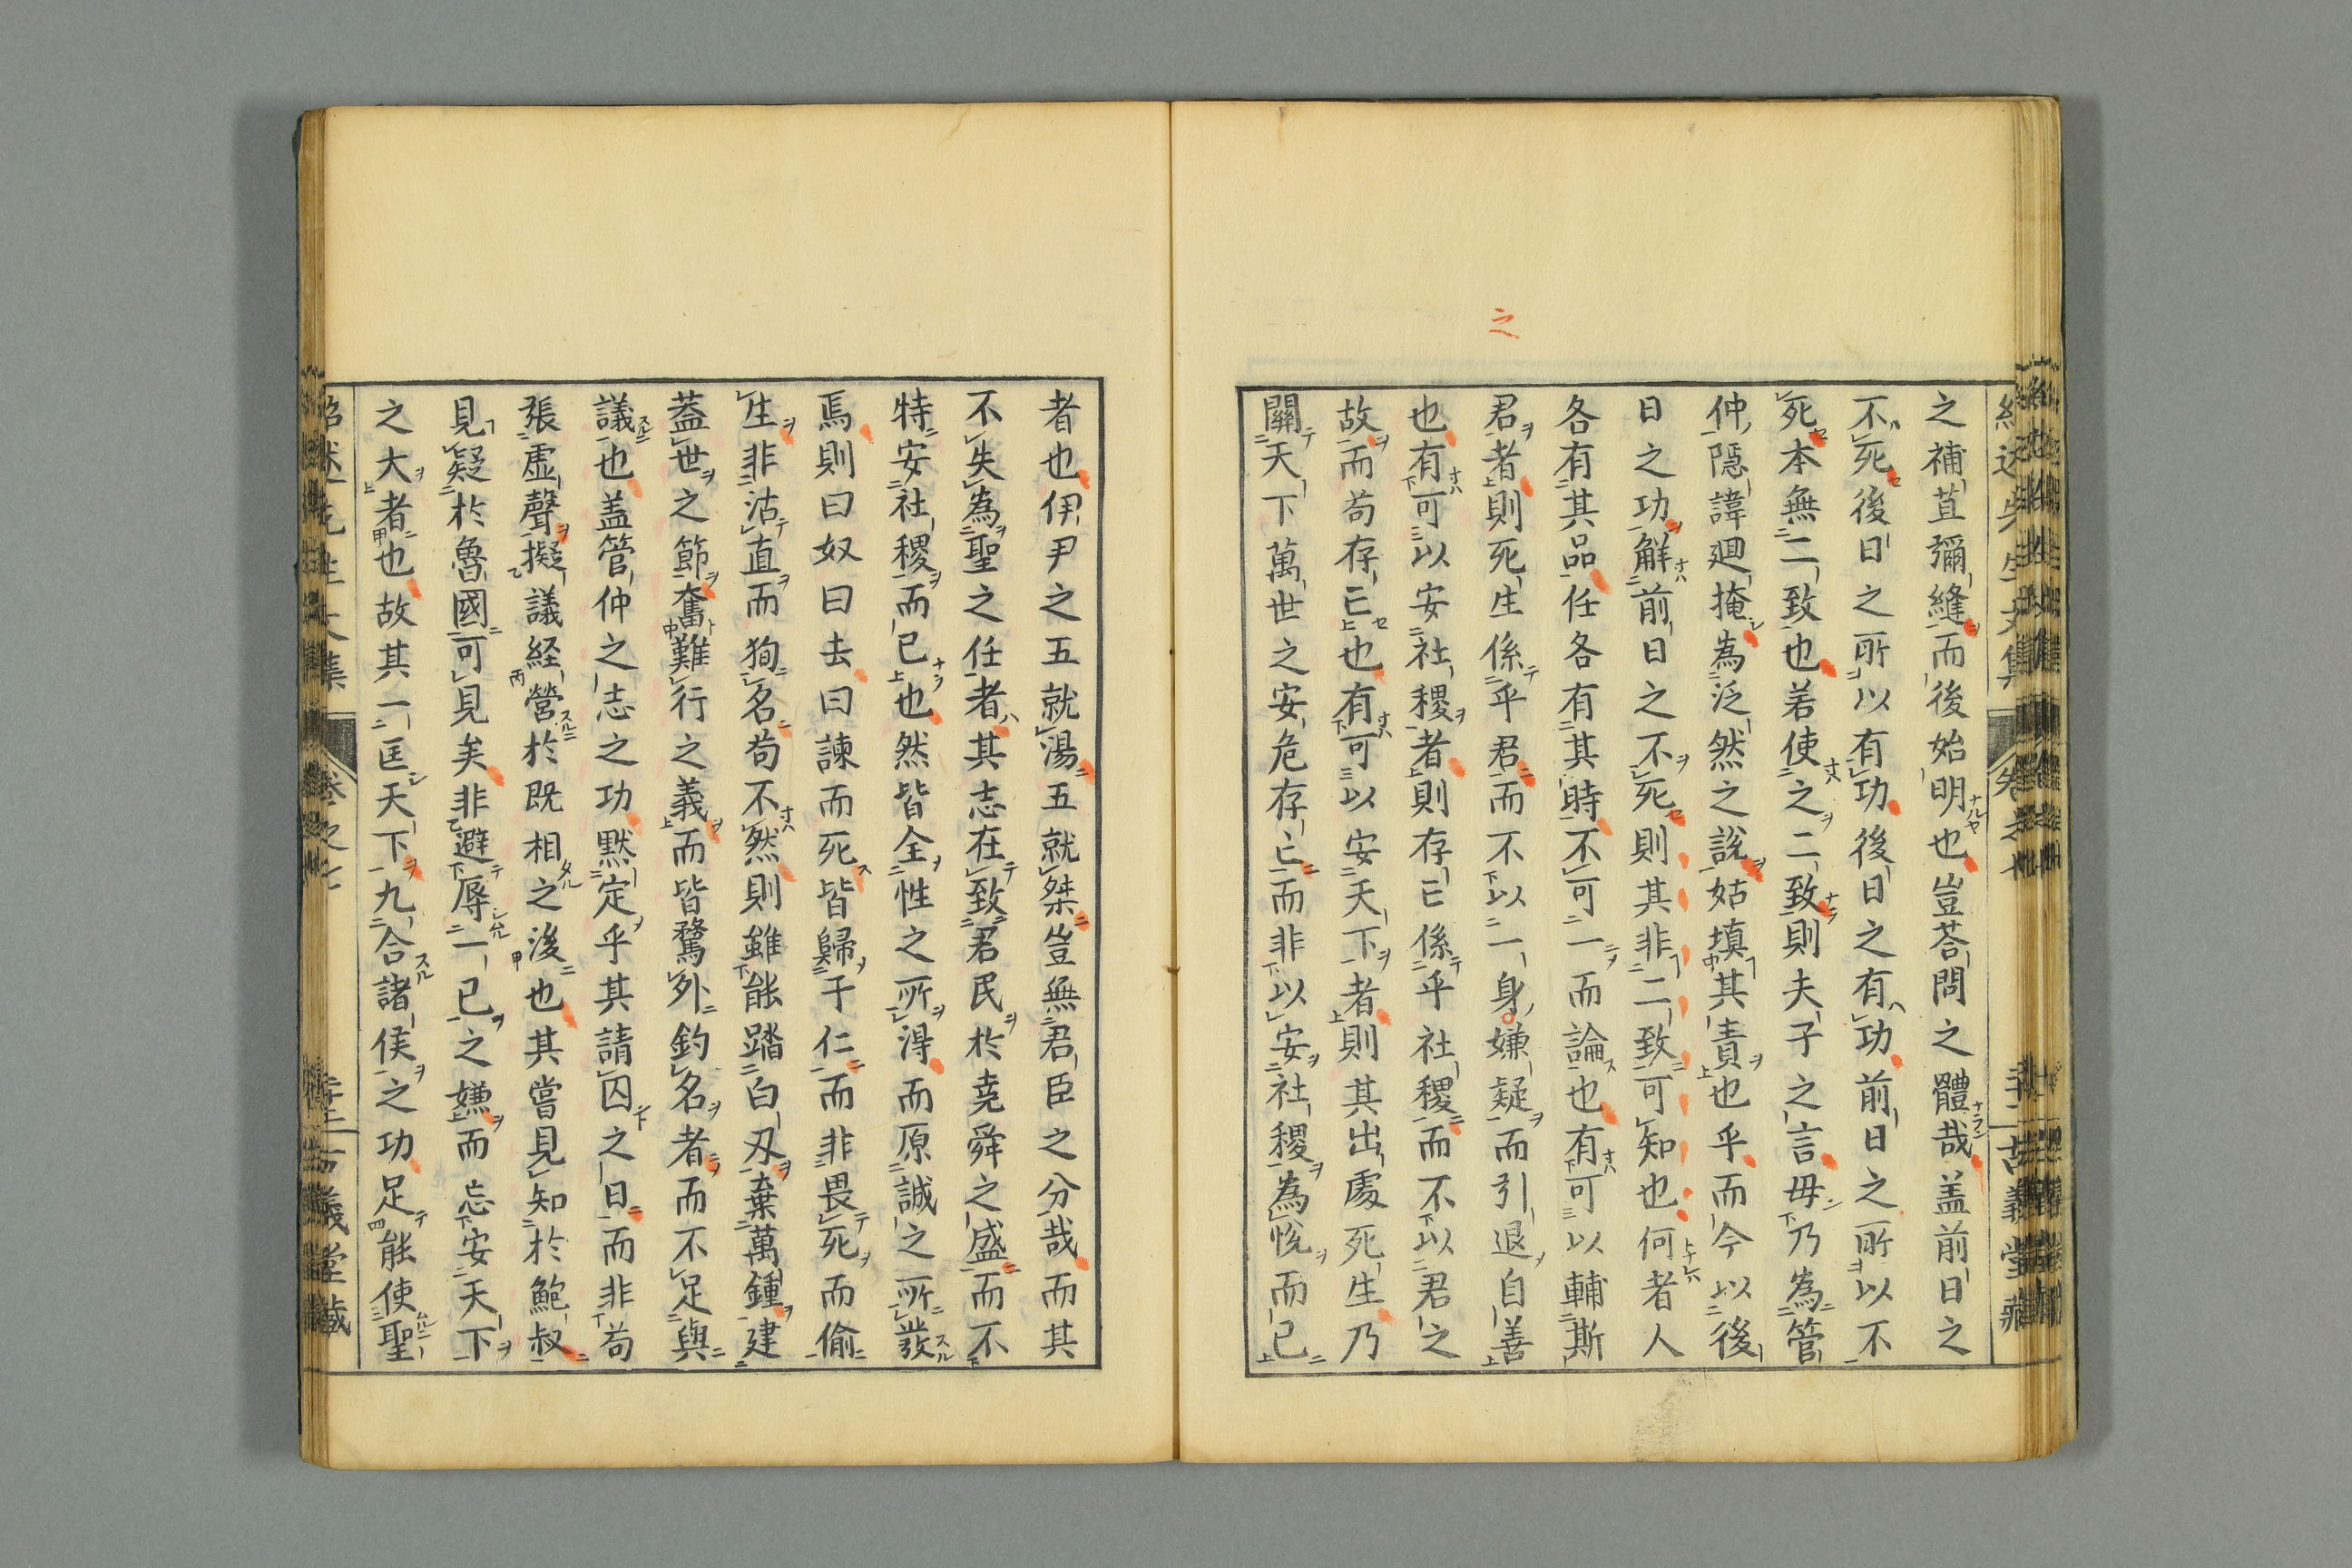 之
之補苴彌縫而後始明也豈荅問之體哉盖前日之
不死後日之所以有功後日之有功前日之所以不
死本無二致也若使之二致則夫子之言毋乃為管
仲隠諱廻掩為泛然之說姑填其責也乎而今以後
日之功觧前日之不死則其非二致可知也何者人
各有其品任各有其時不可一而論也有可以輔斯
君者則死生係乎君而不以一身嫌疑而引退自善
也有可以安社稷者則存亡係乎社稷而不以君之
故而苟存亡也有可以安天下者則其出處死生乃
關天下萬世之安危存亡而非以安社稷為悅而已
者也伊尹之五就湯五就桀豈無君臣之分哉而其
不失為聖之任者其志在致君民於尭舜之盛而不
特安社稷而已也然皆全性之所淂而原誠之所發
焉則曰奴曰去曰諫而死皆歸于仁而非畏死而偷
生非沽直而狥名苟不然則雖能踏白刃棄萬鍾建
葢世之節奮難行之義而皆騖外釣名者而不足與
議也盖管仲之志之功黙定乎其請囚之日而非苟
張虛聲擬議経營於既相之後也其嘗見知於鮑叔
見疑於魯國可見矣非避辱一已之嫌而忘安天下
之大者也故其一匡天下九合諸侯之功足能使聖
紹述先生文集
卷之七
古義堂藏